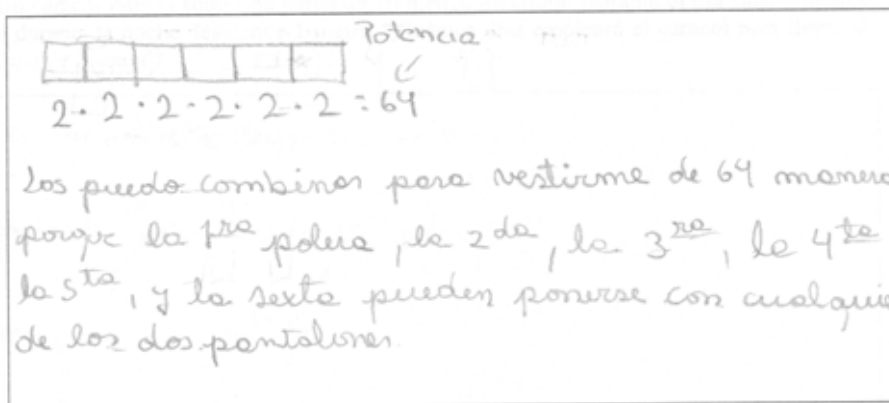 Potencia
2 · 2 · 2 · 2 · 2 · 2 = 64
Los puedo combinar para vestirme de 64 manera
porque la 1ra polera, la 2da, la 3ra, la 4ta
la 5ta, y la sexta pueden ponerse con cualquie
de los dos pantalones.